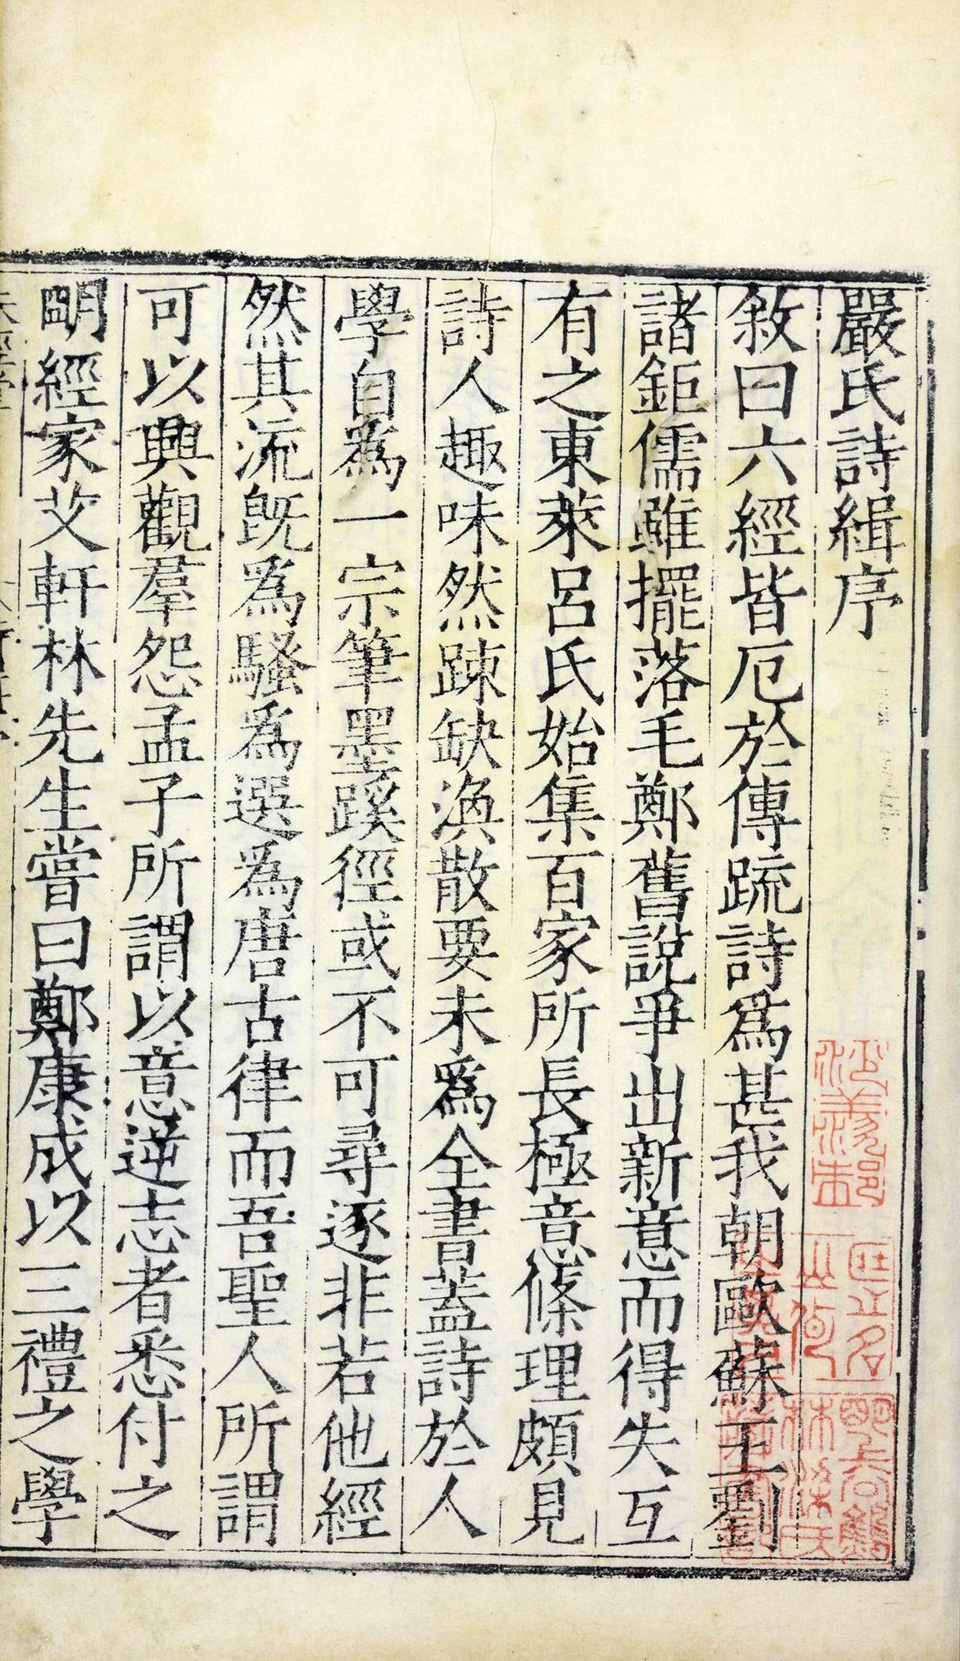 嚴氏詩緝序
敘曰六經皆厄於傳疏詩爲甚我朝歐蘇王劉
諸鉅儒雖擺落毛鄭舊說爭出新意而得失互
有之東萊呂氏始集百家所長極意條理頗見
詩人趣味然踈缺渙散要未爲全書蓋詩於人
學自爲一宗筆墨蹊徑或不可尋逐非若他經
然其流旣爲騷爲選爲唐古律而吾聖人所謂
可以興觀羣怨孟子所謂以意逆志者悉付之
明經家艾軒林先生嘗曰鄭康成以三禮之學